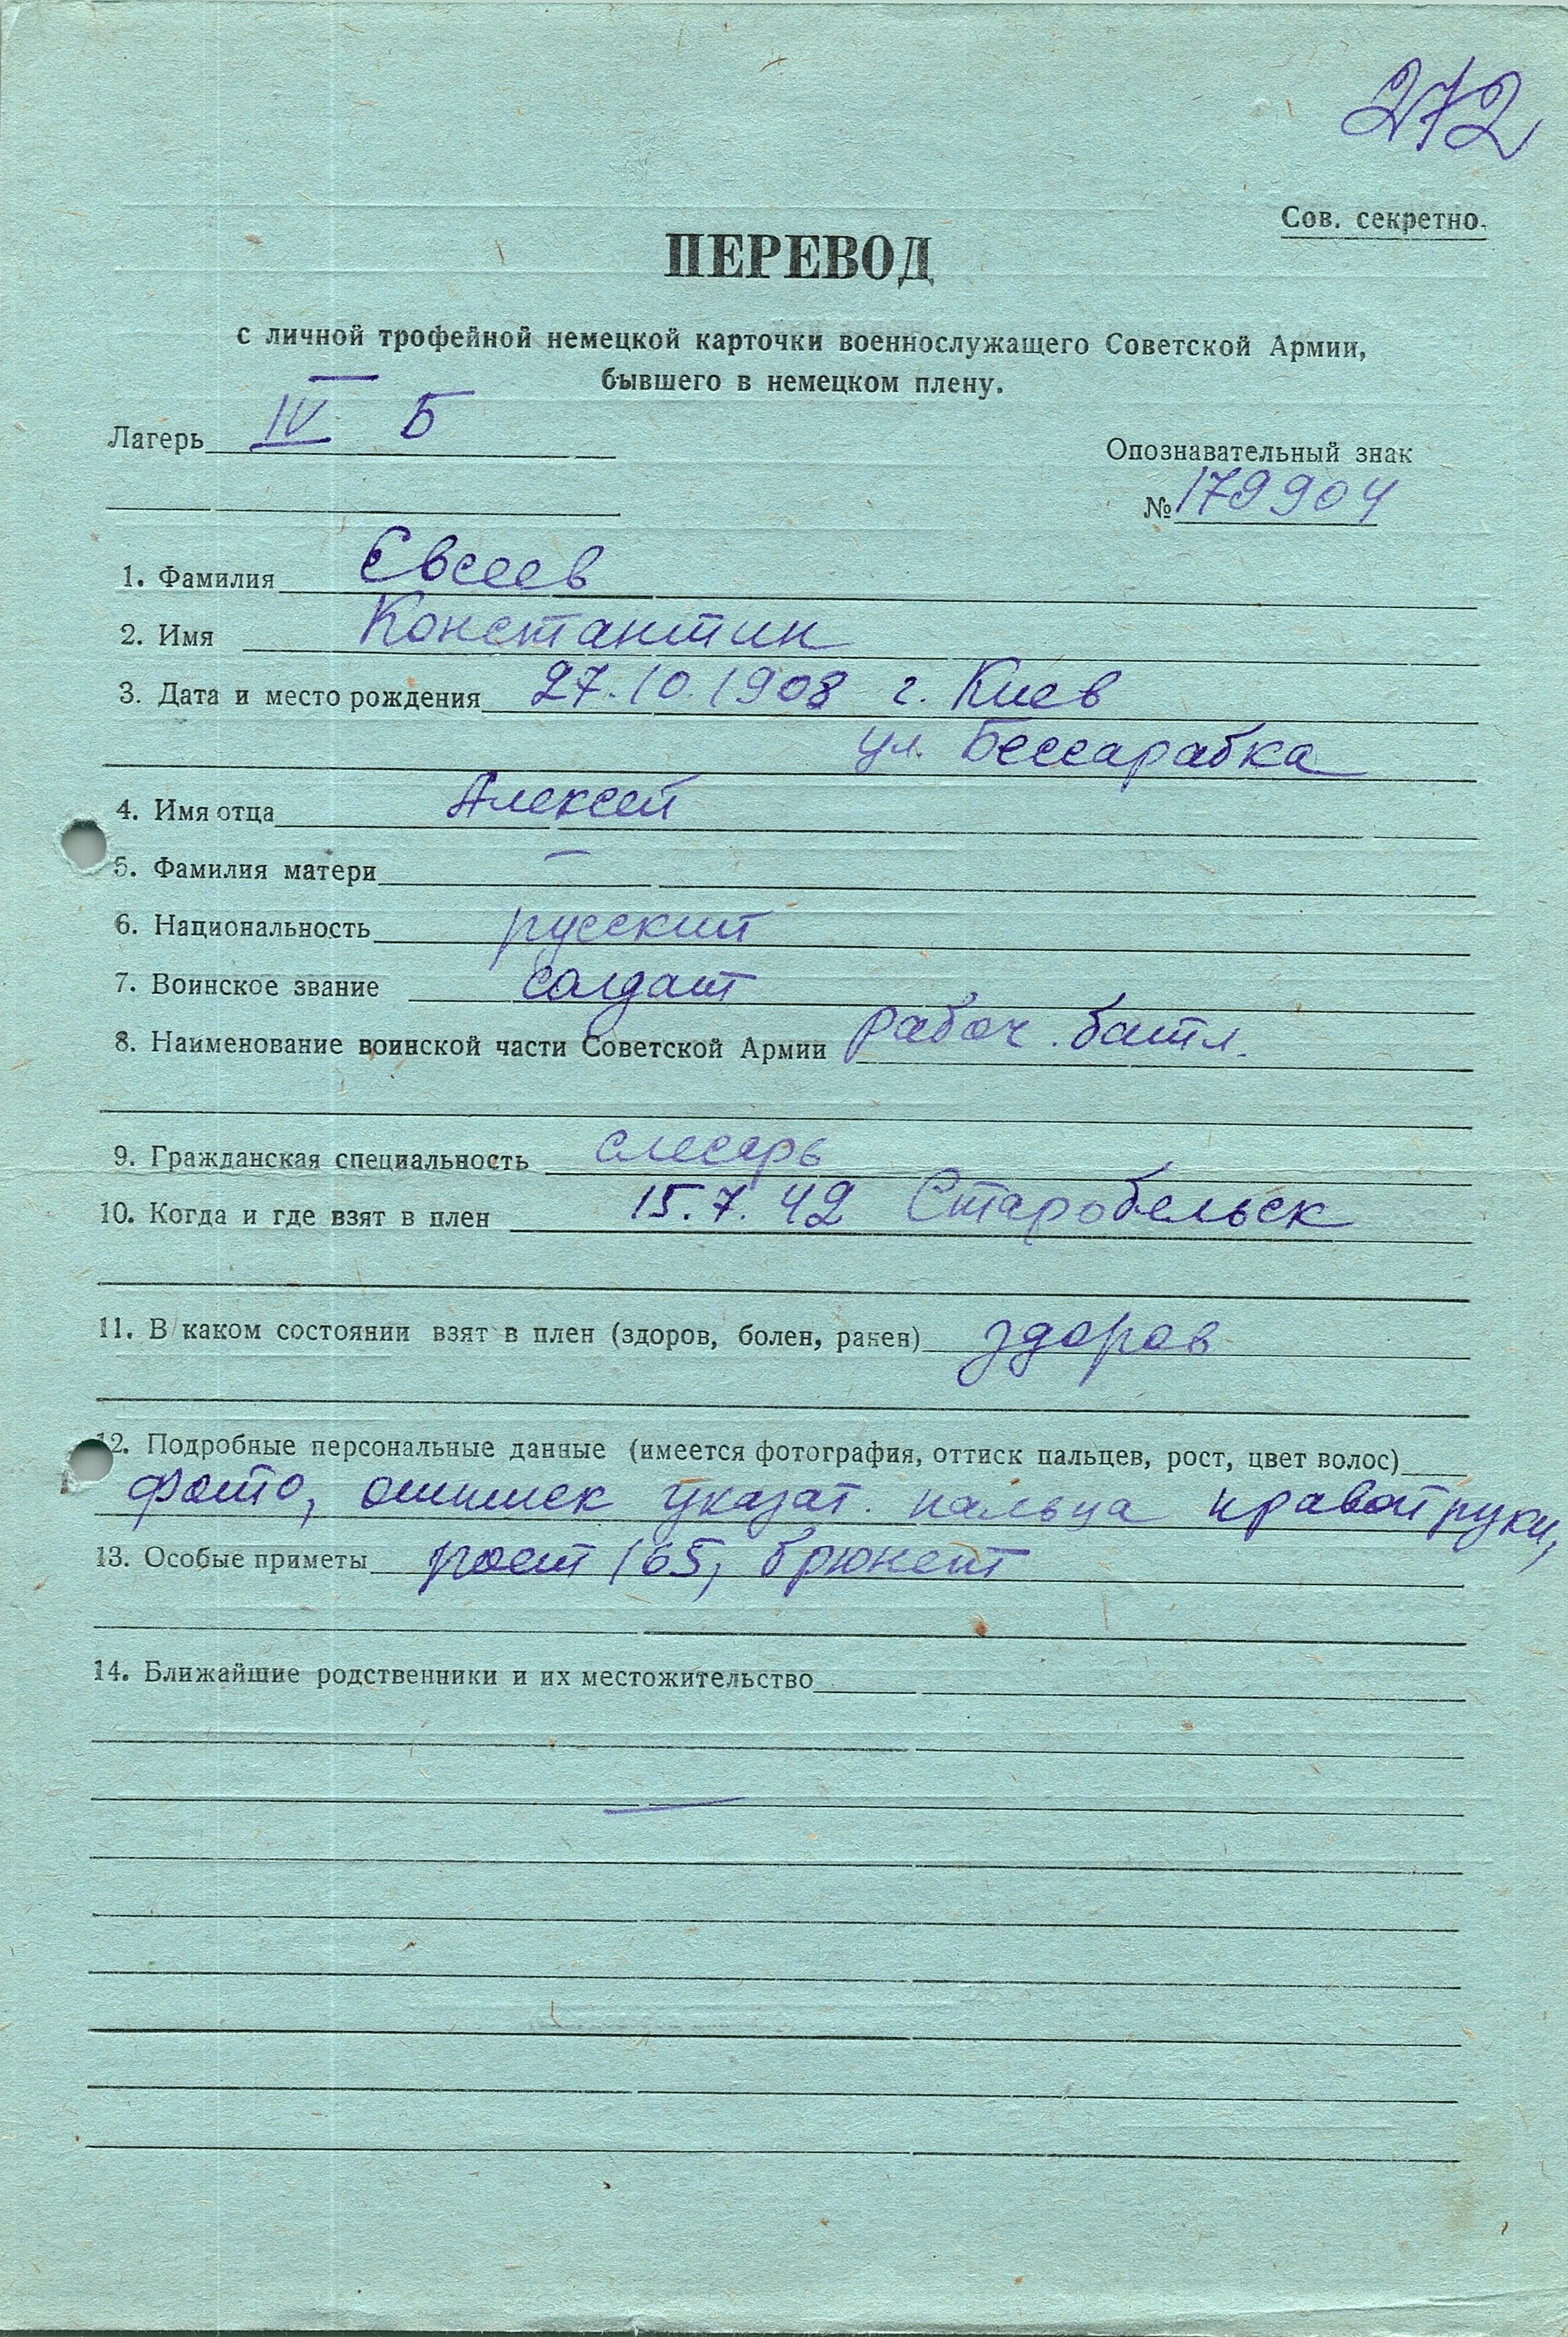 272
Сов. секретно.
ПЕРЕВОД
с личной трофейной немецкой карточки военнослужащего Советской Армии,
бывшего в немецком плену.
Лагерь IV Б
Опознавательный знак
№ 179904
1. Фамилия Евсеев
2. Имя Константин
3. Дата и место рождения 27.10.1908 г. Киев
ул. Бессарабка
4. Имя отца Алексей
5. Фамилия матери —
6. Национальность русский
7. Воинское звание солдат
8. Наименование воинской части Советской Армии рабоч. батл.
9. Гражданская специальность слесарь
10. Когда и где взят в плен 15.7.42 Старобельск
11. В каком состоянии взят в плен (здоров, болен, ранен) здоров
12. Подробные персональные данные (имеется фотография, оттиск пальцев, рост, цвет волос)
фото, оттиск указат. пальца правой руки,
13. Особые приметы рост 165, брюнет
14. Ближайшие родственники и их местожительство
—